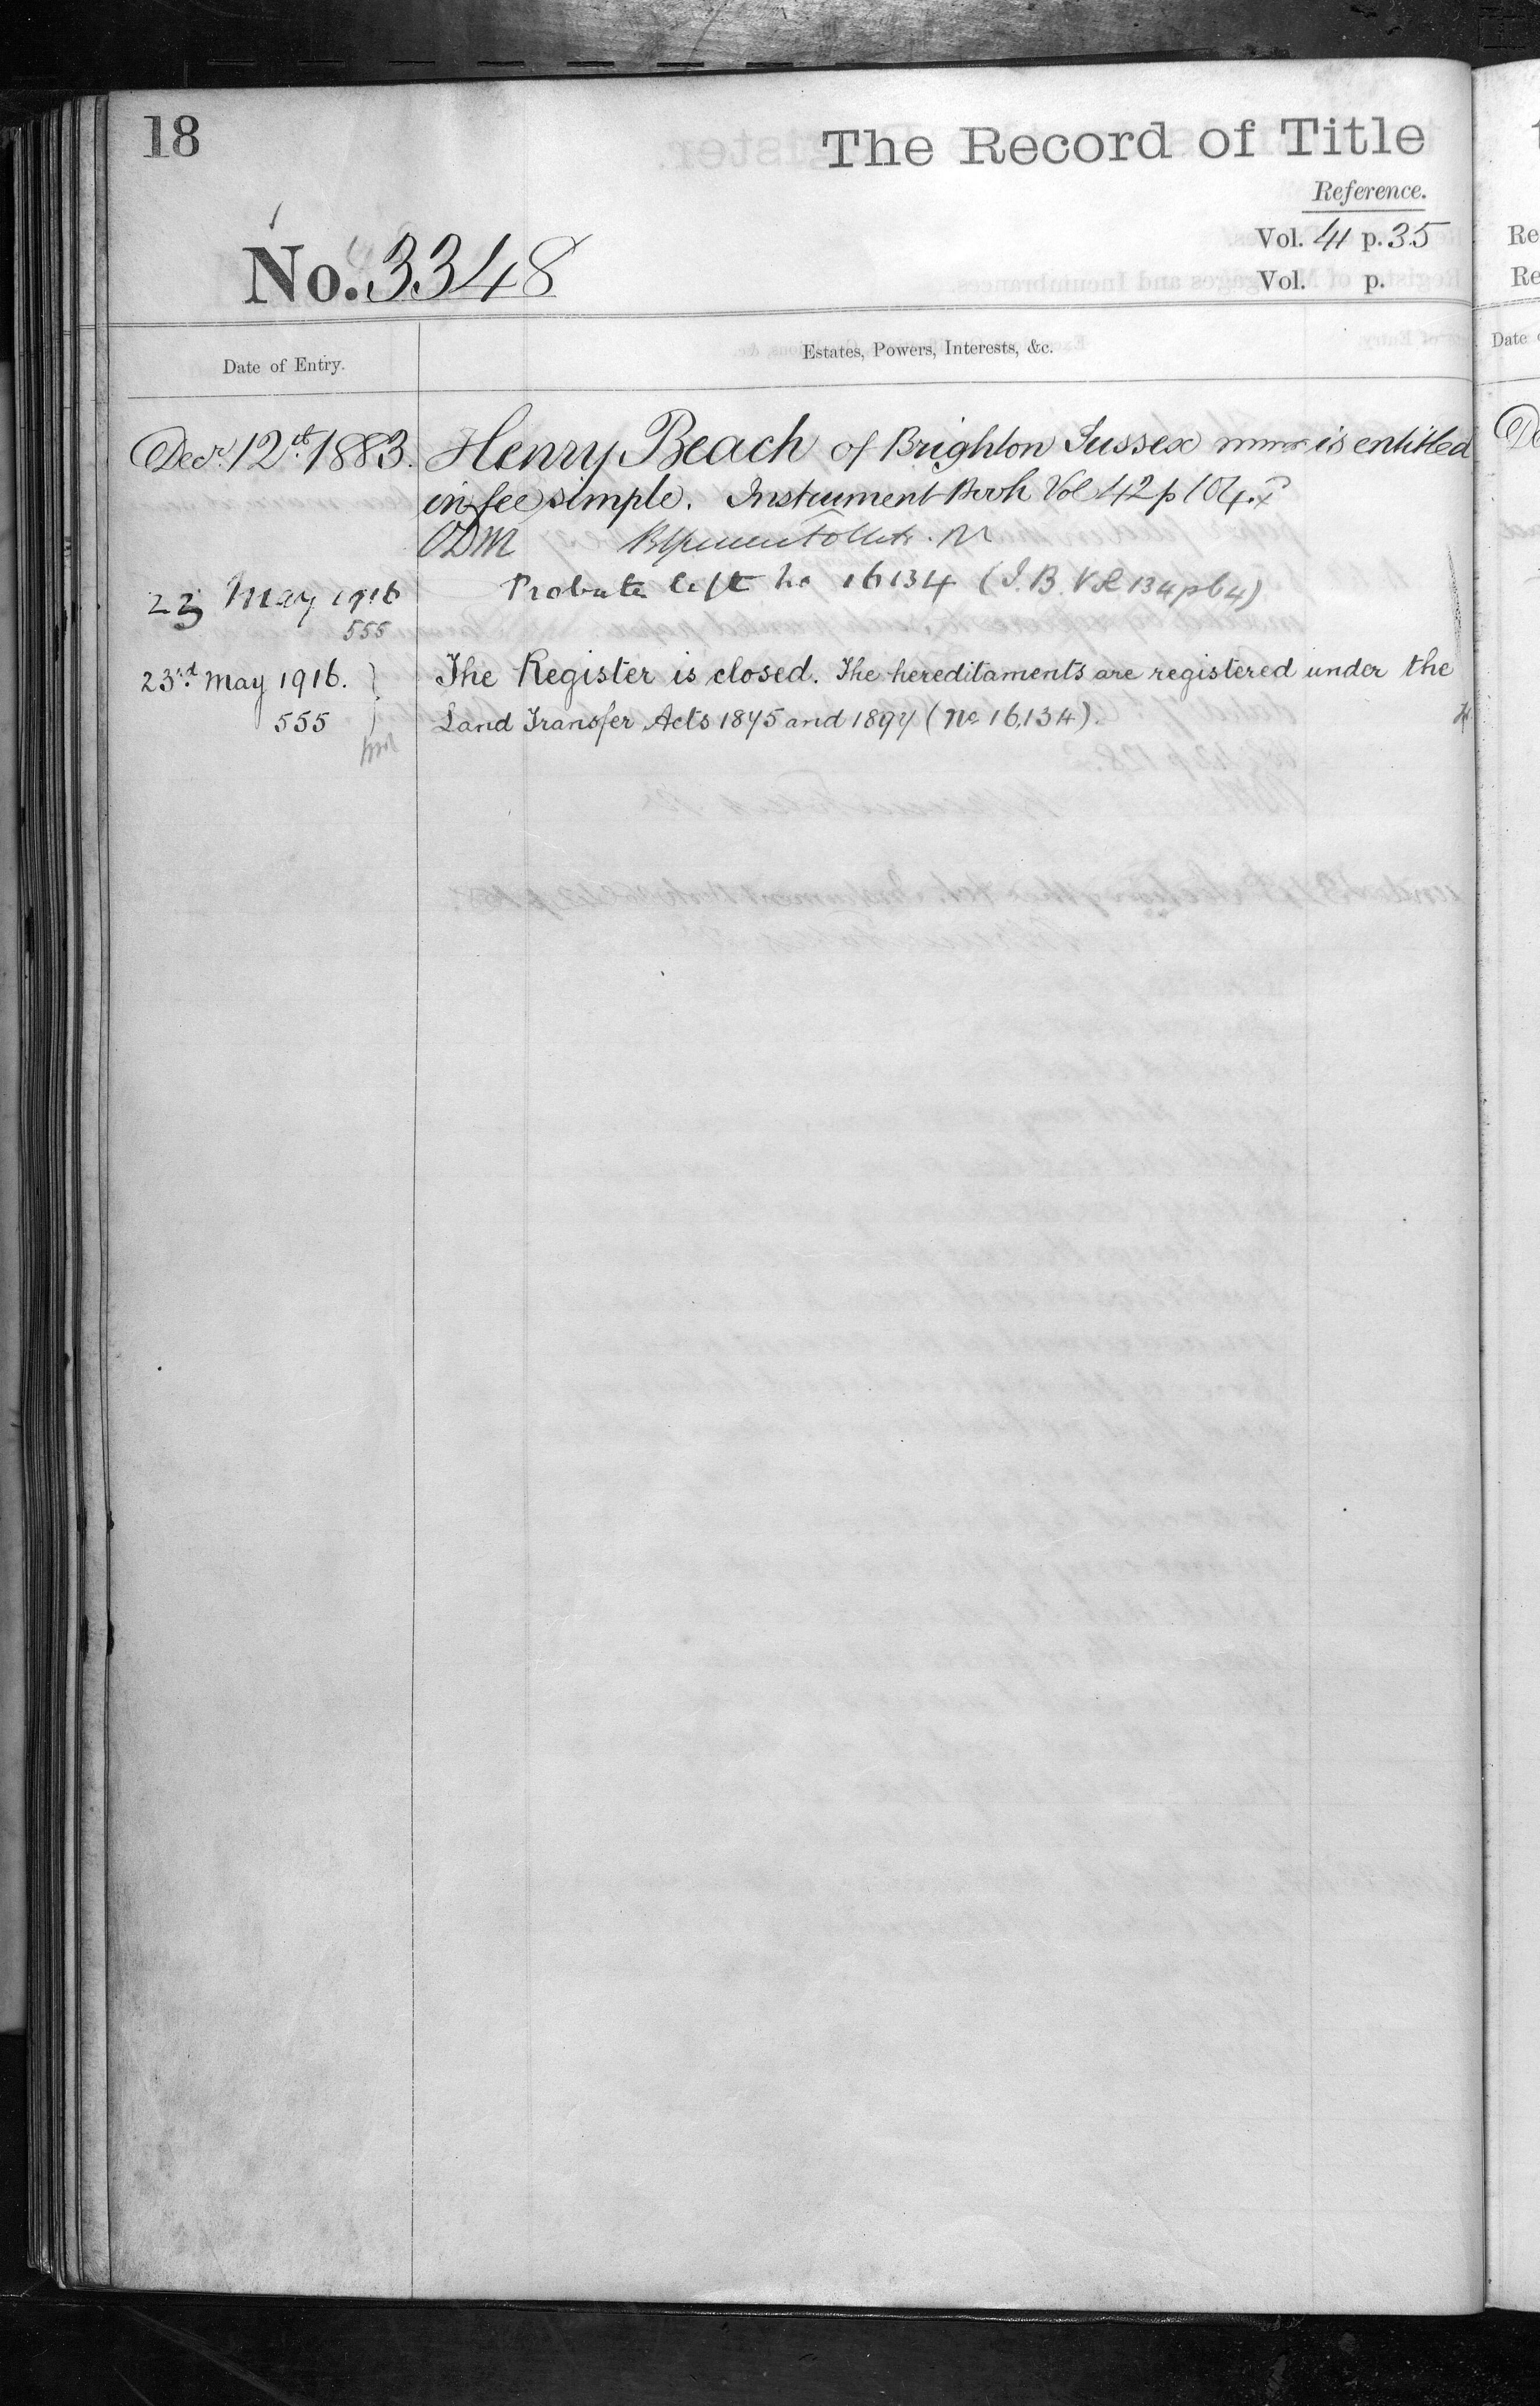 18
The Record of Title
Reference.
No. 3348
Vol. 41 p. 35
Vol. p.
Date of Entry.
Estates, Powers, Interests, &c.
Decr. 12th 1883. Henry Beach of Brighton Sussex is entitled
in fee simple. Instrument Book Vol 42 p 104.
ODM
23 May 1916 Probate left No 16134 (I.B. Vol 134 p64)
555
23rd May 1916. The Register is closed. The hereditaments are registered under the
555 Land Transfer Acts 1875 and 1897 (No 16,134).
Re
Re
Date
De